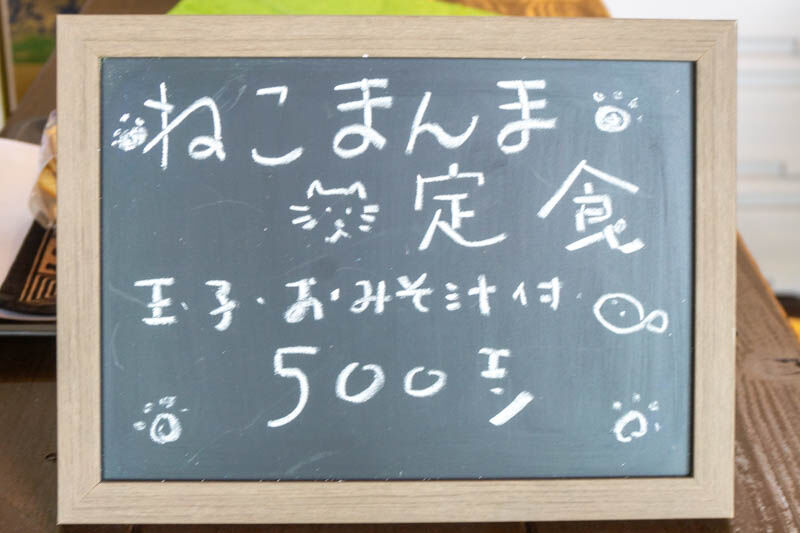 ねこまんま
定食
玉子・お・みそ汁付
500エン